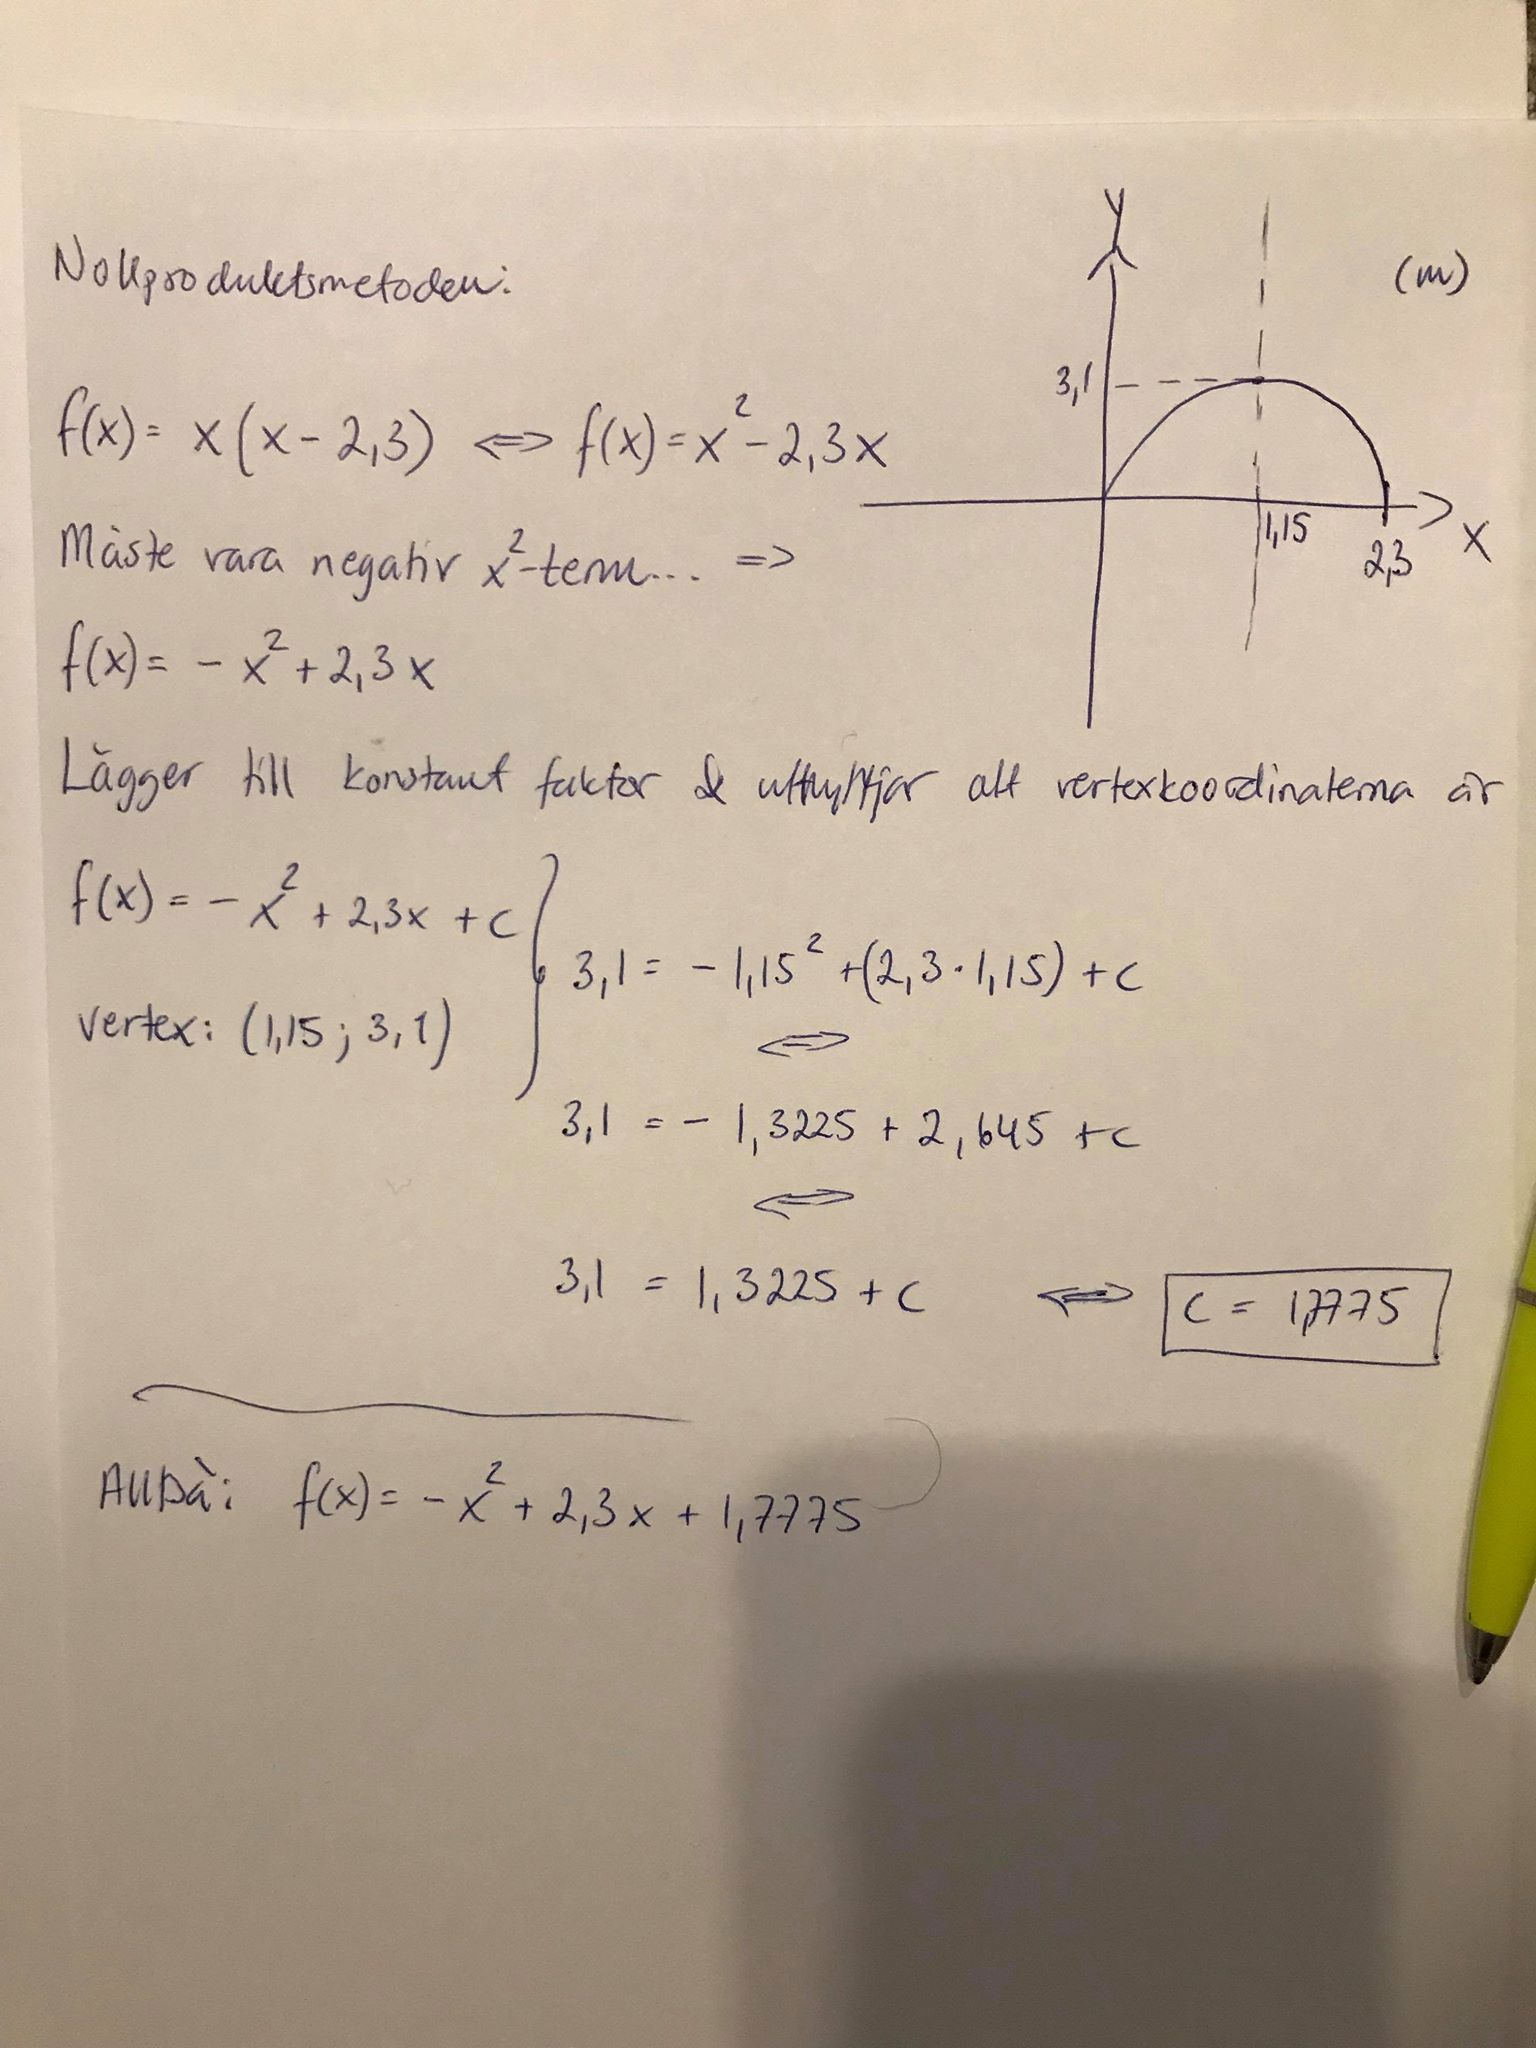 Nollproduktsmetoden:
y
(m)
3,1
1,15
2,3
x
f(x) = x(x - 2,3) <=> f(x) = x² - 2,3x
Måste vara negativ x²-term... =>
f(x) = - x² + 2,3x
Lägger till konstant faktor & uttnyttjar att vertexkoordinaterna är
f(x) = - x² + 2,3x + c
vertex: (1,15 ; 3,1)
3,1 = - 1,15² + (2,3 · 1,15) + c
<=>
3,1 = - 1,3225 + 2,645 + c
<=>
3,1 = 1,3225 + c <=> c = 1,7775
Alltså: f(x) = - x² + 2,3x + 1,7775